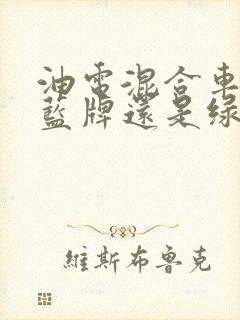 油電混合車
藍牌還是綠
維斯布魯克